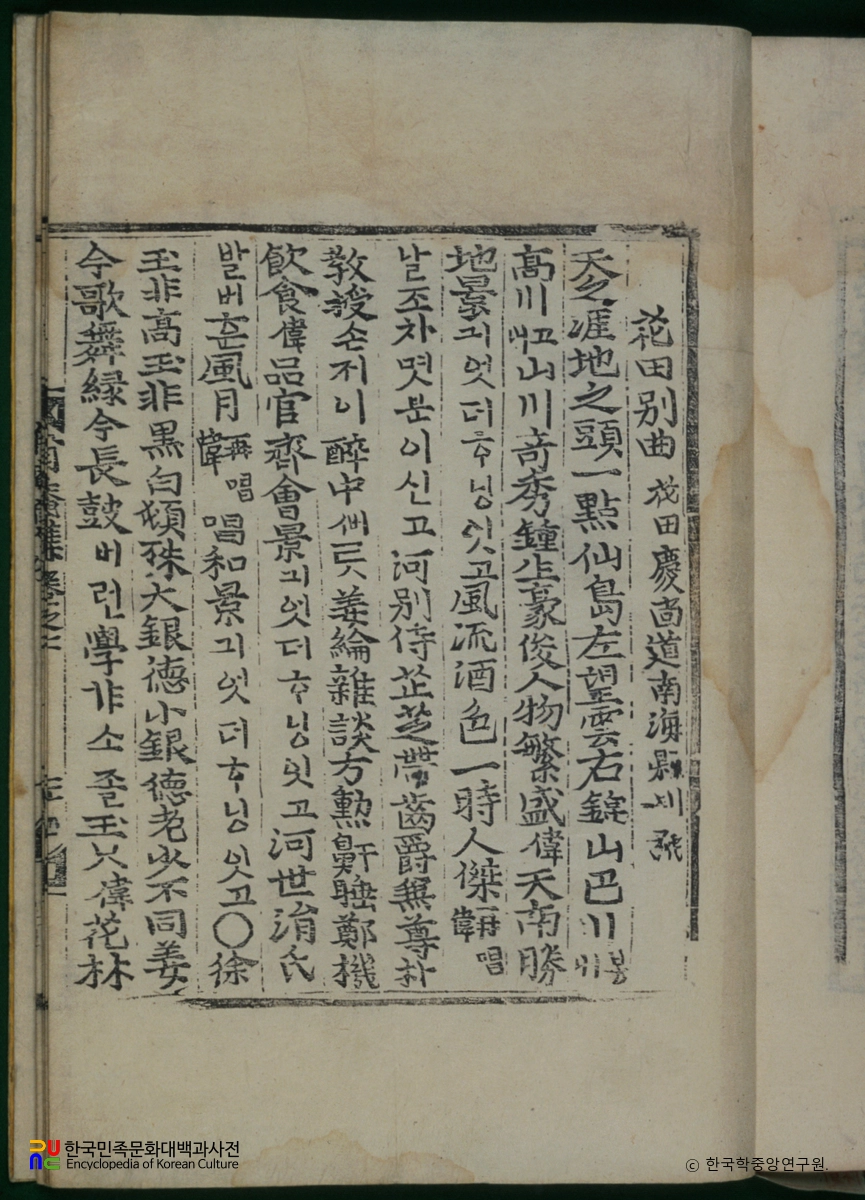 花田别曲 花田慶尙道南海縣別號
天之涯地之頭一點仙島左望雲右錦山巴川봉내
高川고내山川奇秀鍾生豪俊人物繁盛偉天南勝
地景긔엇더ᄒᆞ닝잇고風流酒色一時人傑再唱偉
날조차몃분이신고河別侍芷芝帶齒爵兼尊朴
敎授손저이醉中
姜綸雜談方勳鼾睡鄭機
飮食偉品官齊會景긔엇더ᄒᆞ닝잇고河世涓氏
발버훈風月再唱偉唱和景긔엇더ᄒᆞ닝잇고○徐
玉非高玉非黑白頓殊大銀德小銀德老少不同姜
今歌舞綠今長鼓버런學非소졸玉只偉花林
한국민족문화대백과사전
Encyclopedia of Korean Culture
ⓒ 한국학중앙연구원.